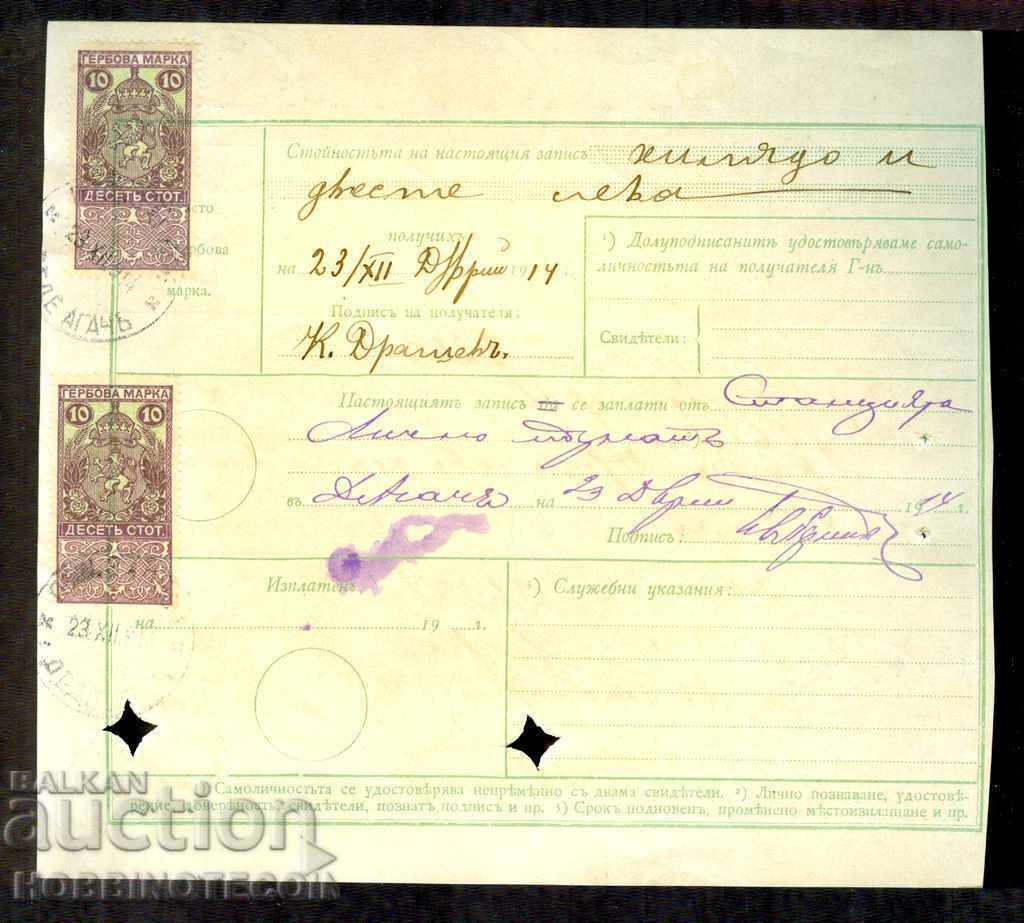 ГЕРБОВА МАРКА
10 10
ДЕСЕТЬ СТОТ.
23 XII 14
ДЕ АГАЧЪ
място
гербова
марка.
Стойностьта на настоящия записъ хилядо и
двесте лева
получихъ
на 23/XII Д 1914 г.
Подписъ на получателя:
К. Драгиевъ.
¹) Долуподписанитѣ удостовѣряваме само-
личностьта на получателя Г-нъ
Свидѣтели:
ГЕРБОВА МАРКА
10 10
ДЕСЕТЬ СТОТ.
23 XII
Настоящиятъ записъ да се заплати отъ Станцията
Лично познатъ
въ Д Агачъ на 23 Дврий 1914 г.
Подписъ:
Изплатенъ
на 19 г.
³) Служебни указания:
Самоличностьта се удостовѣрява непрѣмѣнно съ двама свидѣтели. ²) Лично познаване, удостовѣ-
рение, довѣреность, свидѣтели, познатъ подписъ и пр. ³) Срокъ подновенъ, промѣнено мѣстоизплащане и пр.
BALKAN
auction
HOBBINOTECOIN